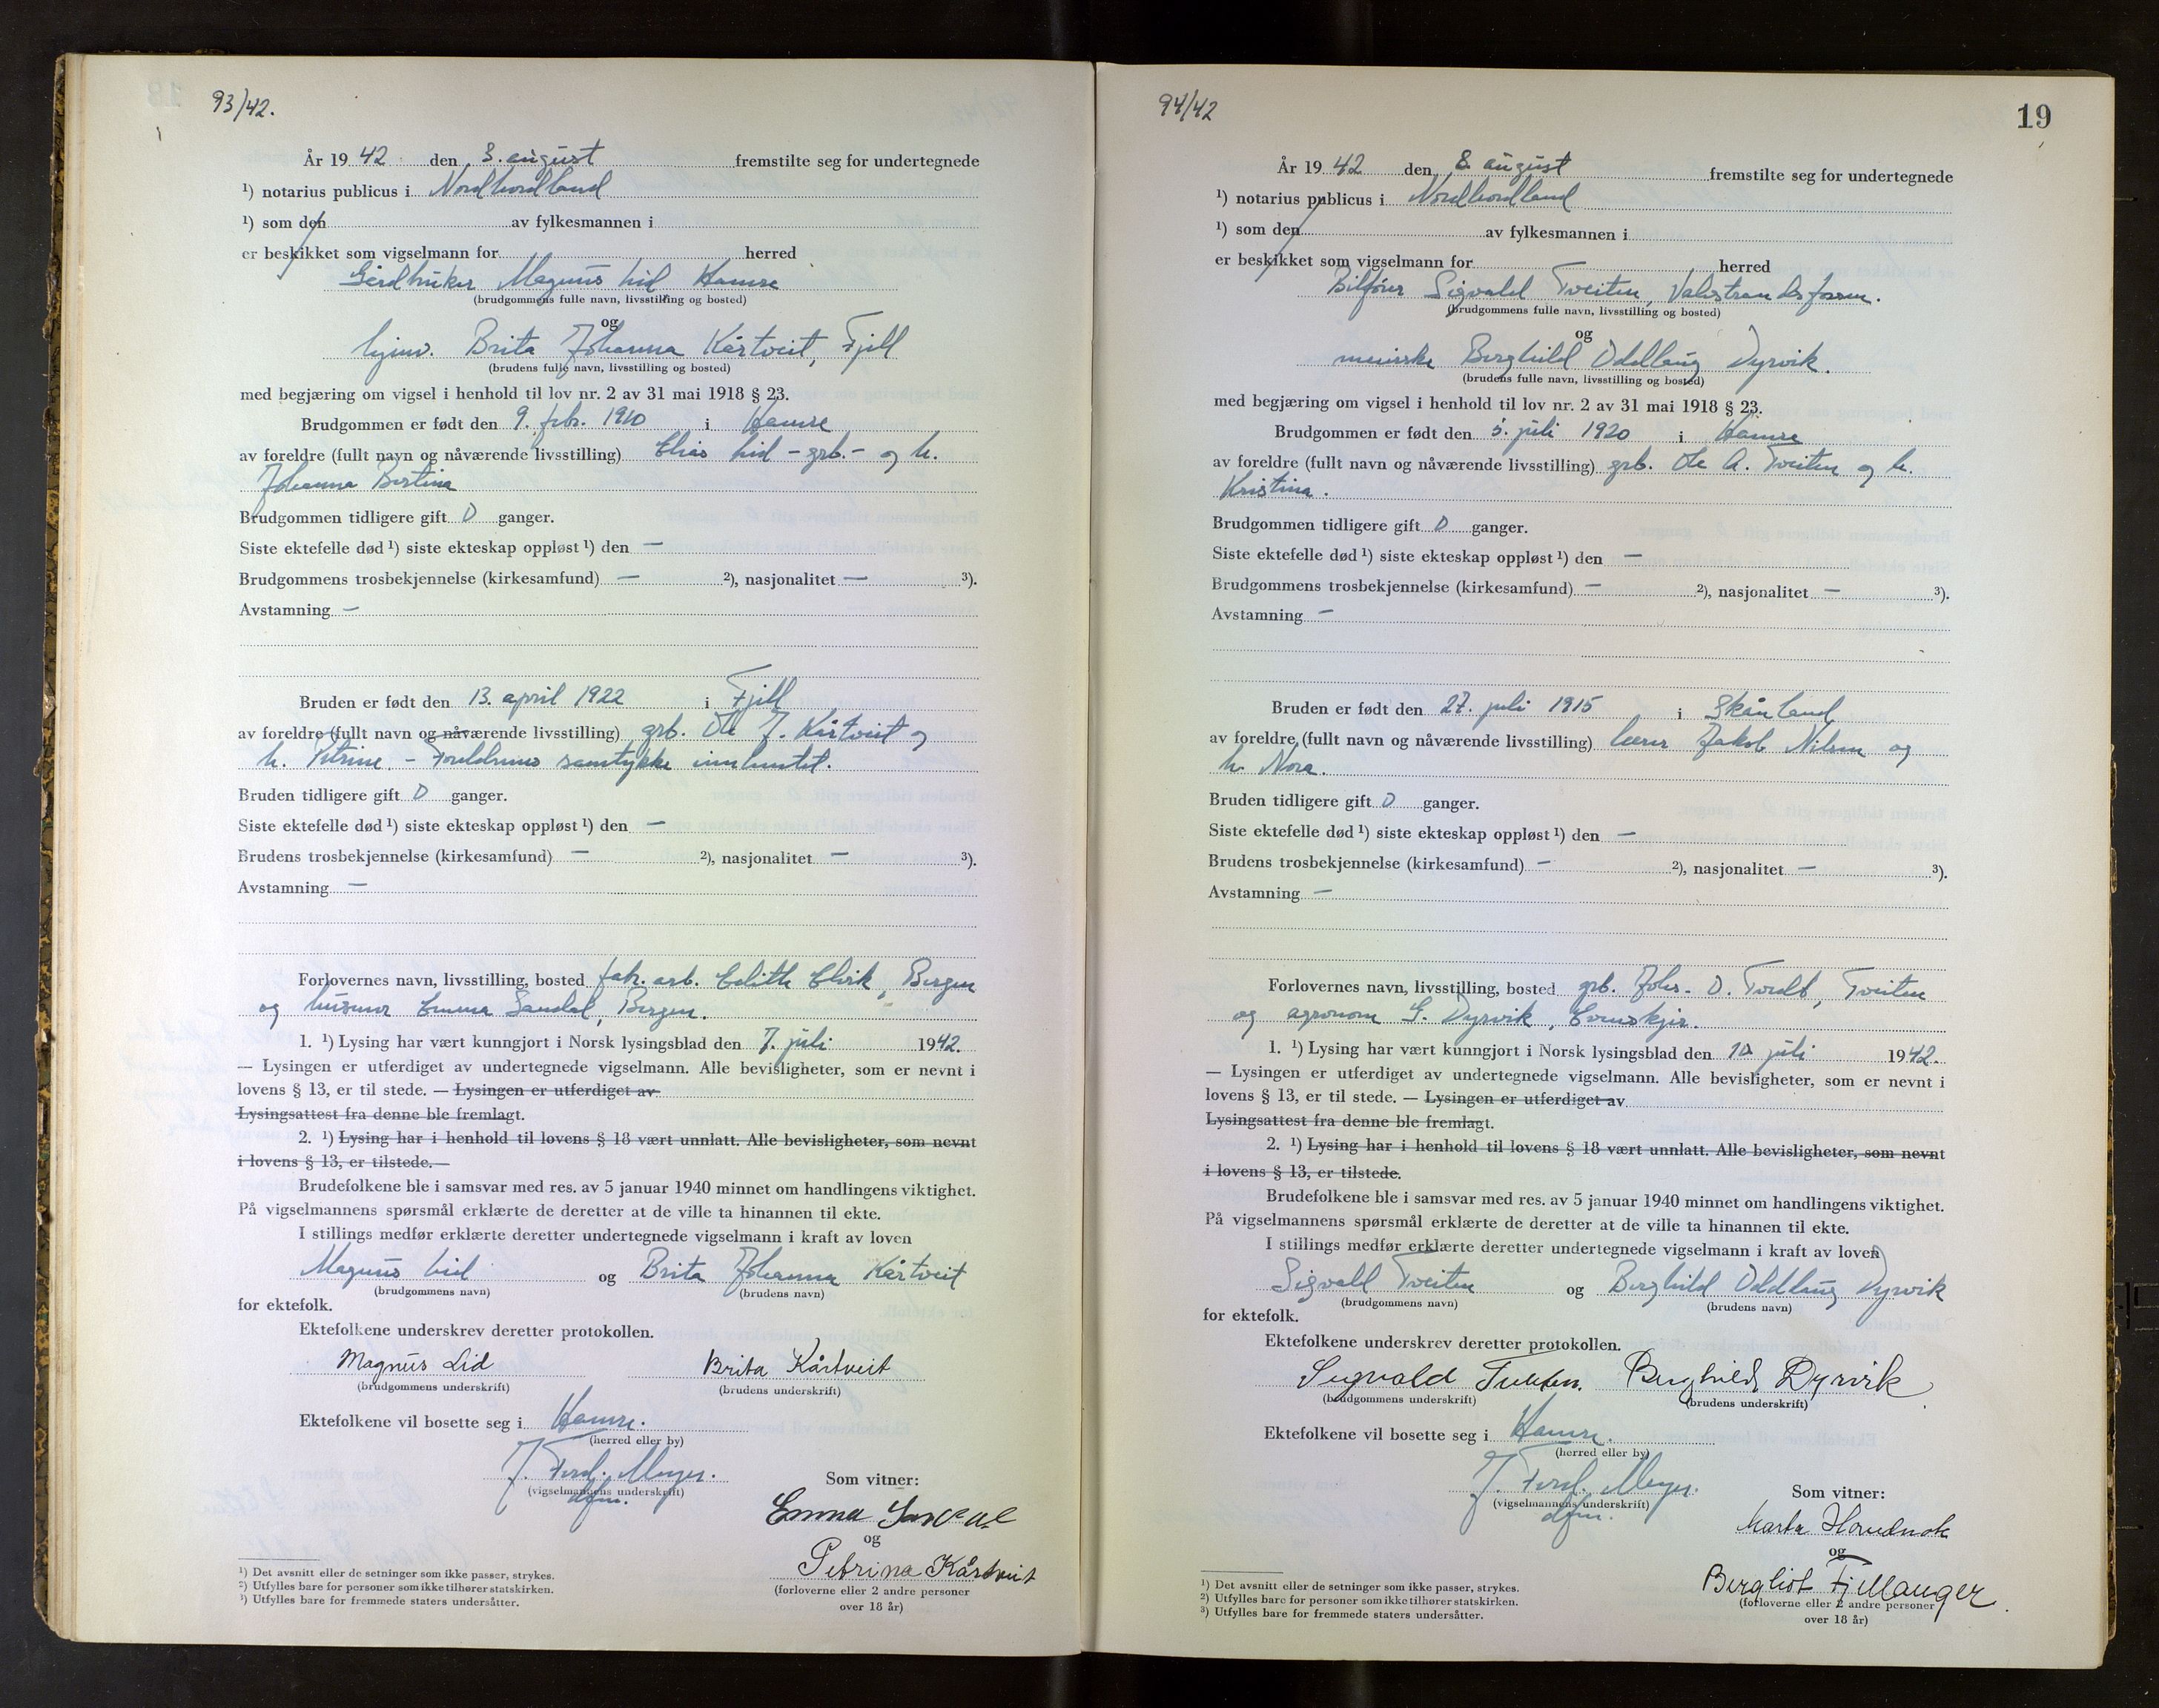 93/42.
År 19 42 den 3. august fremstilte seg for undertegnede
¹) notarius publicus i Nordhordland
¹) som den av fylkesmannen i
er beskikket som vigselmann for herred
Gårdbruker Magnus Lid Hamre
(brudgommens fulle navn, livsstilling og bosted)
og
hjmv. Brita Johanna Kårtveit, Fjell
(brudens fulle navn, livsstilling og bosted)
med begjæring om vigsel i henhold til lov nr. 2 av 31 mai 1918 § 23.
Brudgommen er født den 9. febr. 1910 i Hamre
av foreldre (fullt navn og nåværende livsstilling) Elias Lid - grb. - og h.
Johanna Bertina
Brudgommen tidligere gift 0 ganger.
Siste ektefelle død ¹) siste ekteskap oppløst ¹) den —
Brudgommens trosbekjennelse (kirkesamfund) — ²), nasjonalitet — ³).
Avstamning —
Bruden er født den 13. april 1922 i Fjell
av foreldre (fullt navn og nåværende livsstilling) grb. Ole J. Kårtveit og
h. Petrine - Foreldrenes samtykke innhentet.
Bruden tidligere gift 0 ganger.
Siste ektefelle død ¹) siste ekteskap oppløst ¹) den —
Brudens trosbekjennelse (kirkesamfund) — ²), nasjonalitet — ³).
Avstamning —
Forlovernes navn, livsstilling, bosted fabr. arb. Edith Elvik, Bergen
og husmor Emma Sandal, Bergen.
1. ¹) Lysing har vært kunngjort i Norsk lysingsblad den 7. juli 1942.
— Lysingen er utferdiget av undertegnede vigselmann. Alle bevisligheter, som er nevnt i
lovens § 13, er til stede. — Lysingen er utferdiget av
Lysingsattest fra denne ble fremlagt.
2. ¹) Lysing har i henhold til lovens § 18 vært unnlatt. Alle bevisligheter, som nevnt
i lovens § 13, er tilstede. —
Brudefolkene ble i samsvar med res. av 5 januar 1940 minnet om handlingens viktighet.
På vigselmannens spørsmål erklærte de deretter at de ville ta hinannen til ekte.
I stillings medfør erklærte deretter undertegnede vigselmann i kraft av loven
Magnus Lid og Brita Johanna Kårtveit
(brudgommens navn) (brudens navn)
for ektefolk.
Ektefolkene underskrev deretter protokollen.
Magnus Lid Brita Kårtveit
(brudgommens underskrift) (brudens underskrift)
Ektefolkene vil bosette seg i Hamre.
(herred eller by)
J. Ferd. Meyer.
(vigselmannens underskrift)
dfm.
Som vitner:
Emma Sandal
og
Petrina Kårtveit
(forloverne eller 2 andre personer
over 18 år)
¹) Det avsnitt eller de setninger som ikke passer, strykes.
²) Utfylles bare for personer som ikke tilhører statskirken.
³) Utfylles bare for fremmede staters undersåtter.
94/42
19
År 19 42 den 8. august fremstilte seg for undertegnede
¹) notarius publicus i Nordhordland
¹) som den av fylkesmannen i
er beskikket som vigselmann for herred
Bilfører Sigvald Tveiten, Valestrandsfossen.
(brudgommens fulle navn, livsstilling og bosted)
og
meierske Borghild Oddlaug Dyrvik.
(brudens fulle navn, livsstilling og bosted)
med begjæring om vigsel i henhold til lov nr. 2 av 31 mai 1918 § 23.
Brudgommen er født den 5. juli 1920 i Hamre
av foreldre (fullt navn og nåværende livsstilling) grb. Ole A. Tveiten og h.
Kristina.
Brudgommen tidligere gift 0 ganger.
Siste ektefelle død ¹) siste ekteskap oppløst ¹) den —
Brudgommens trosbekjennelse (kirkesamfund) — ²), nasjonalitet — ³).
Avstamning —
Bruden er født den 27. juli 1915 i Skånland
av foreldre (fullt navn og nåværende livsstilling) lærer Jakob Nilsen og
h. Nora.
Bruden tidligere gift 0 ganger.
Siste ektefelle død ¹) siste ekteskap oppløst ¹) den —
Brudens trosbekjennelse (kirkesamfund) — ²), nasjonalitet — ³).
Avstamning —
Forlovernes navn, livsstilling, bosted grb. Johs. O. Tveiten
og agronom G. Dyrvik, Evenskjer.
1. ¹) Lysing har vært kunngjort i Norsk lysingsblad den 10 juli 1942.
— Lysingen er utferdiget av undertegnede vigselmann. Alle bevisligheter, som er nevnt i
lovens § 13, er til stede. — Lysingen er utferdiget av
Lysingsattest fra denne ble fremlagt.
2. ¹) Lysing har i henhold til lovens § 18 vært unnlatt. Alle bevisligheter, som nevnt
i lovens § 13, er tilstede.
Brudefolkene ble i samsvar med res. av 5 januar 1940 minnet om handlingens viktighet.
På vigselmannens spørsmål erklærte de deretter at de ville ta hinannen til ekte.
I stillings medfør erklærte deretter undertegnede vigselmann i kraft av loven
Sigvald Tveiten og Borghild Oddlaug Dyrvik
(brudgommens navn) (brudens navn)
for ektefolk.
Ektefolkene underskrev deretter protokollen.
Sigvald Tveiten. Borghild Dyrvik
(brudgommens underskrift) (brudens underskrift)
Ektefolkene vil bosette seg i Hamre.
(herred eller by)
J. Ferd. Meyer.
(vigselmannens underskrift)
dfm.
Som vitner:
Marta
og
Bergliot Fjellanger
(forloverne eller 2 andre personer
over 18 år)
¹) Det avsnitt eller de setninger som ikke passer, strykes.
²) Utfylles bare for personer som ikke tilhører statskirken.
³) Utfylles bare for fremmede staters undersåtter.